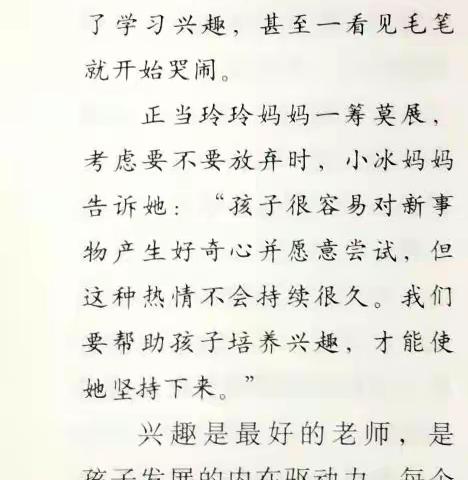 了学习兴趣，甚至一看见毛笔
就开始哭闹。
正当玲玲妈妈一筹莫展，
考虑要不要放弃时，小冰妈妈
告诉她：“孩子很容易对新事
物产生好奇心并愿意尝试，但
这种热情不会持续很久。我们
要帮助孩子培养兴趣，才能使
她坚持下来。”
兴趣是最好的老师，是
孩子发展的内在驱动力。每个